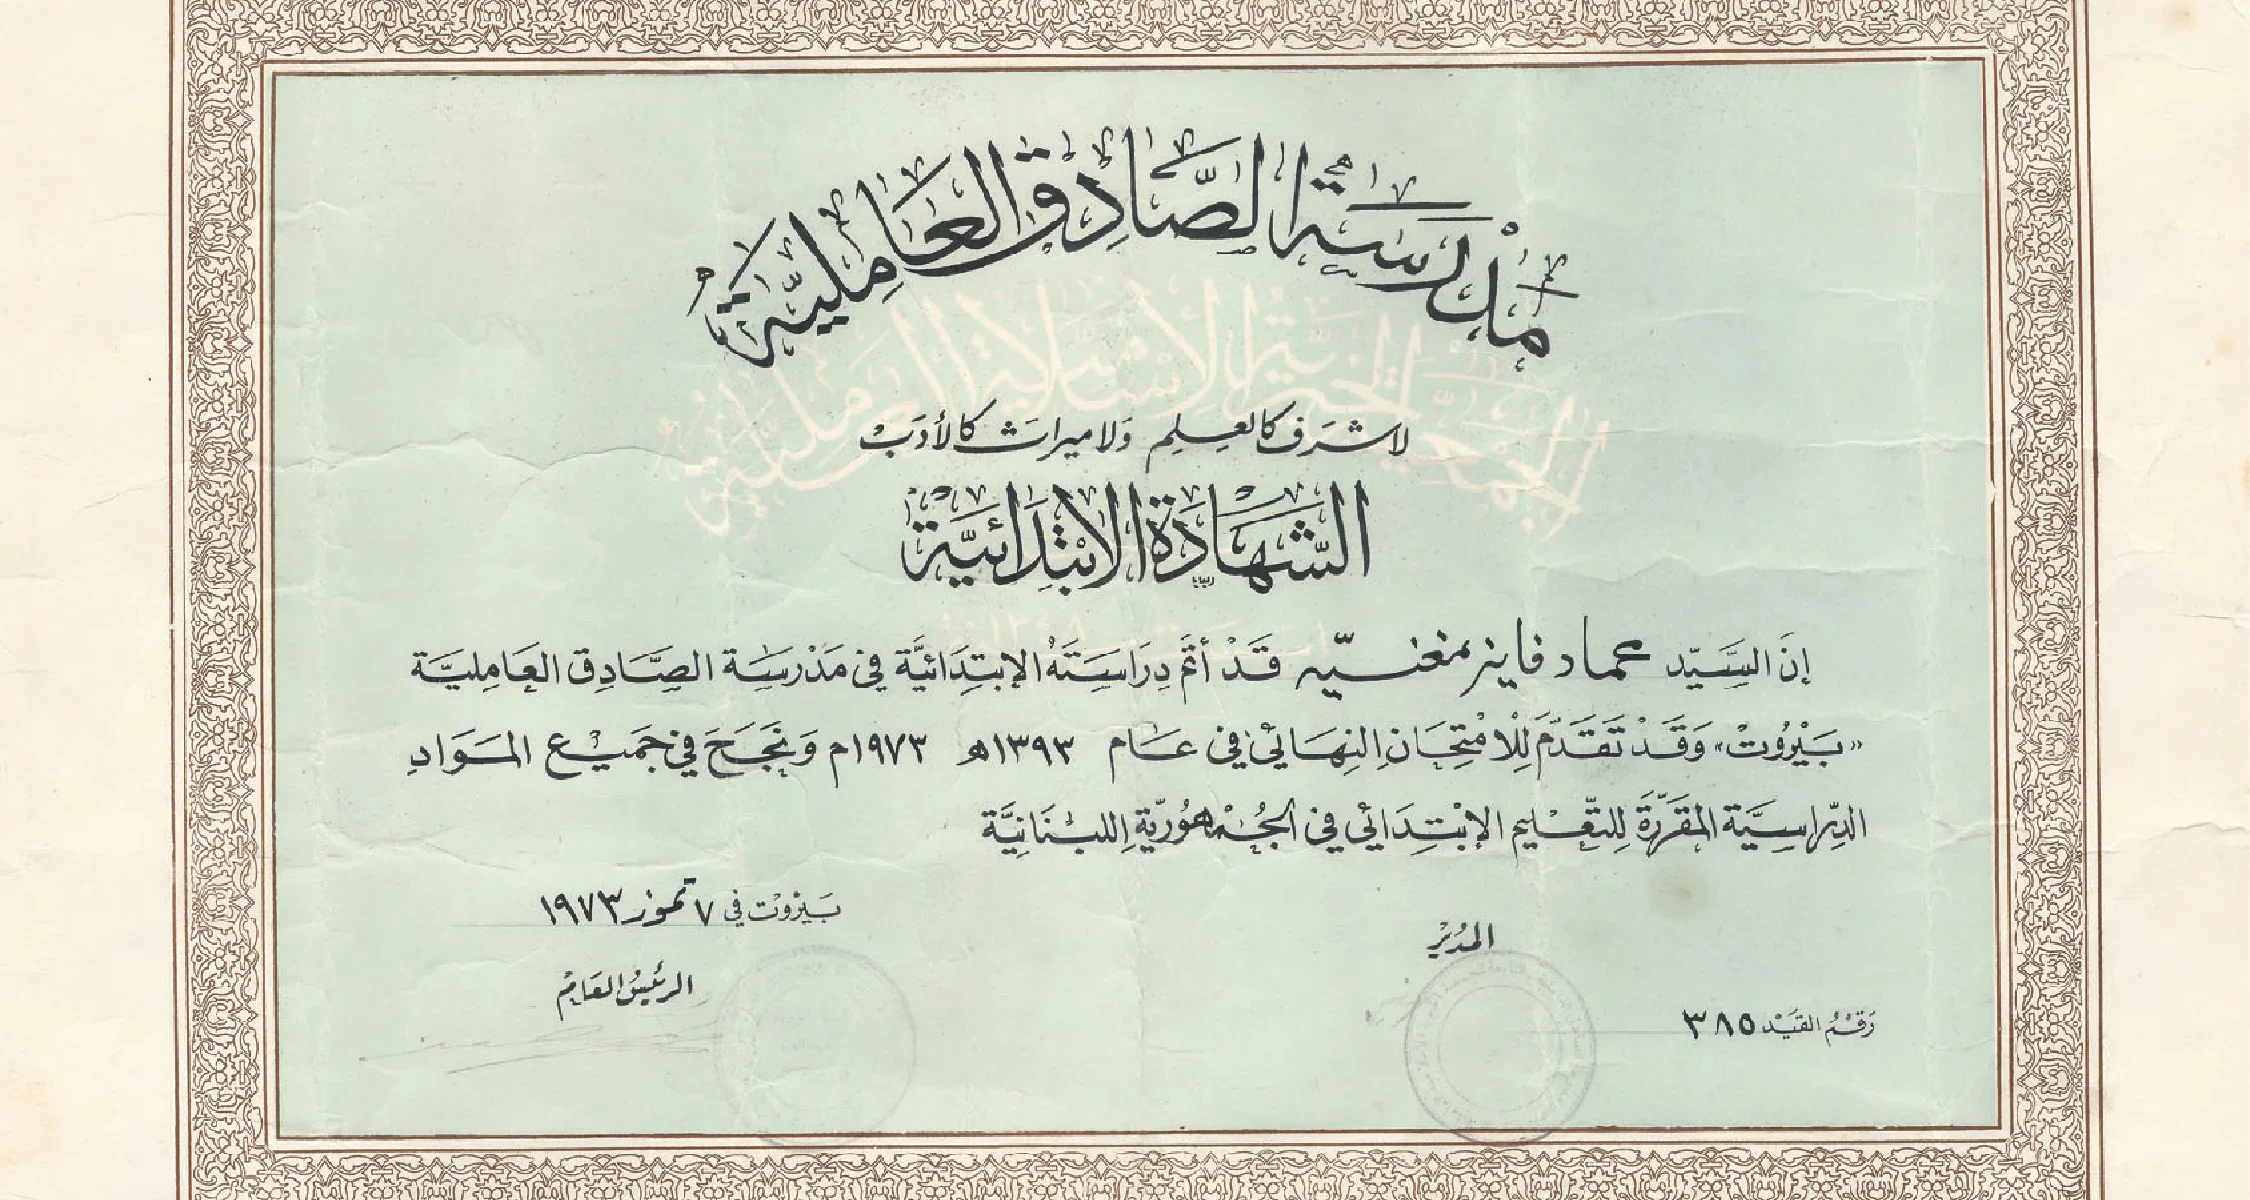 مَدْرَسَة الصَّادِق العَامِليَّة
الجمعيّة الخيريّة الإسلاميّة العامليّة
لا شَرَف كالعِلم وَلا ميراث كالأدَبْ
الشَّهَادَة الابْتِدَائيَّة
إنَ السَّيّد عماد فايز مغنيّه قَدْ أتمَّ دِرَاسَتَهُ الإبتِدَائيَّة في مَدْرسَة الصَّادِق العَامِليَّة
«بَيْرُوتْ» وَقَدْ تَقَدَّمَ لِلْامْتِحَانِ النِهَائيْ في عَام ١٣٩٣هـ ١٩٧٣م وَنَجَحَ في جَميْع المَوَادِ
الدِّراسيَّة المقَرَّرَة لِلتّعْليم الإبْتِدَائي في الجُمْهُوريّةِ اللبْنَانيَّة
بَيْرُوت في ٧ تموز ١٩٧٣
المدُيْر
الرئيسُ العَامْ
رَقمُ القَيْد ٣٨٥